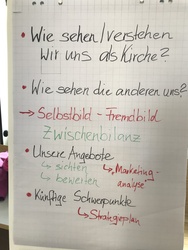 • Wie sehen/verstehen
wir uns als Kirche?
• Wie sehen die anderen uns?
→ Selbstbild - Fremdbild
Zwischenbilanz
• Unsere Angebote
↳ sichten
↳ bewerten
↳ Marketing-
analyse
• Künftige Schwerpunkte
↳ Strategieplan